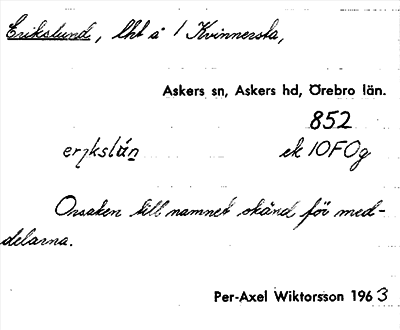 Erikslund, lht å 1 Kvinnersta,
Askers sn, Askers hd, Örebro län.
852
erikslún ek 10F0g
Orsaken till namnet okänd för med-
delarna.
Per-Axel Wiktorsson 1963